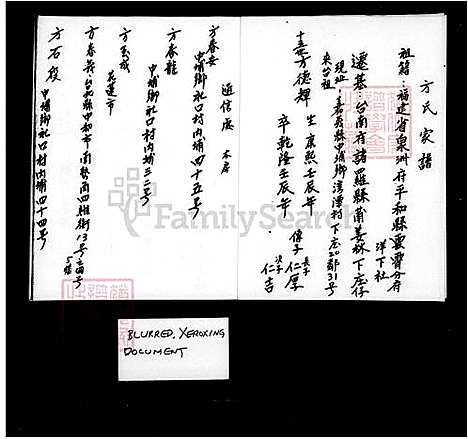 方氏家譜
祖籍：福建省泉州府平和縣雲霄分府
洋下社
遷基：台南府諸羅縣莆姜林下庄仔
現址：嘉義縣中埔鄉灣潭村下庄20鄰31号
來台祖
十二世方德輝 生康熙壬辰年
卒乾隆壬辰年
傳子
長子仁厚
次子仁吉
通信處 本房
方春安
中埔鄉水口村內埔四十五号
方春龍
中埔鄉水口村內埔三二号
方玉成
花蓮市
方春英：台北縣中和市南勢角四維街13号之四号
5樓
方石段
中埔鄉水口村內埔四十四号
BLURRED, XEROXING
DOCUMENT
FamilySearch